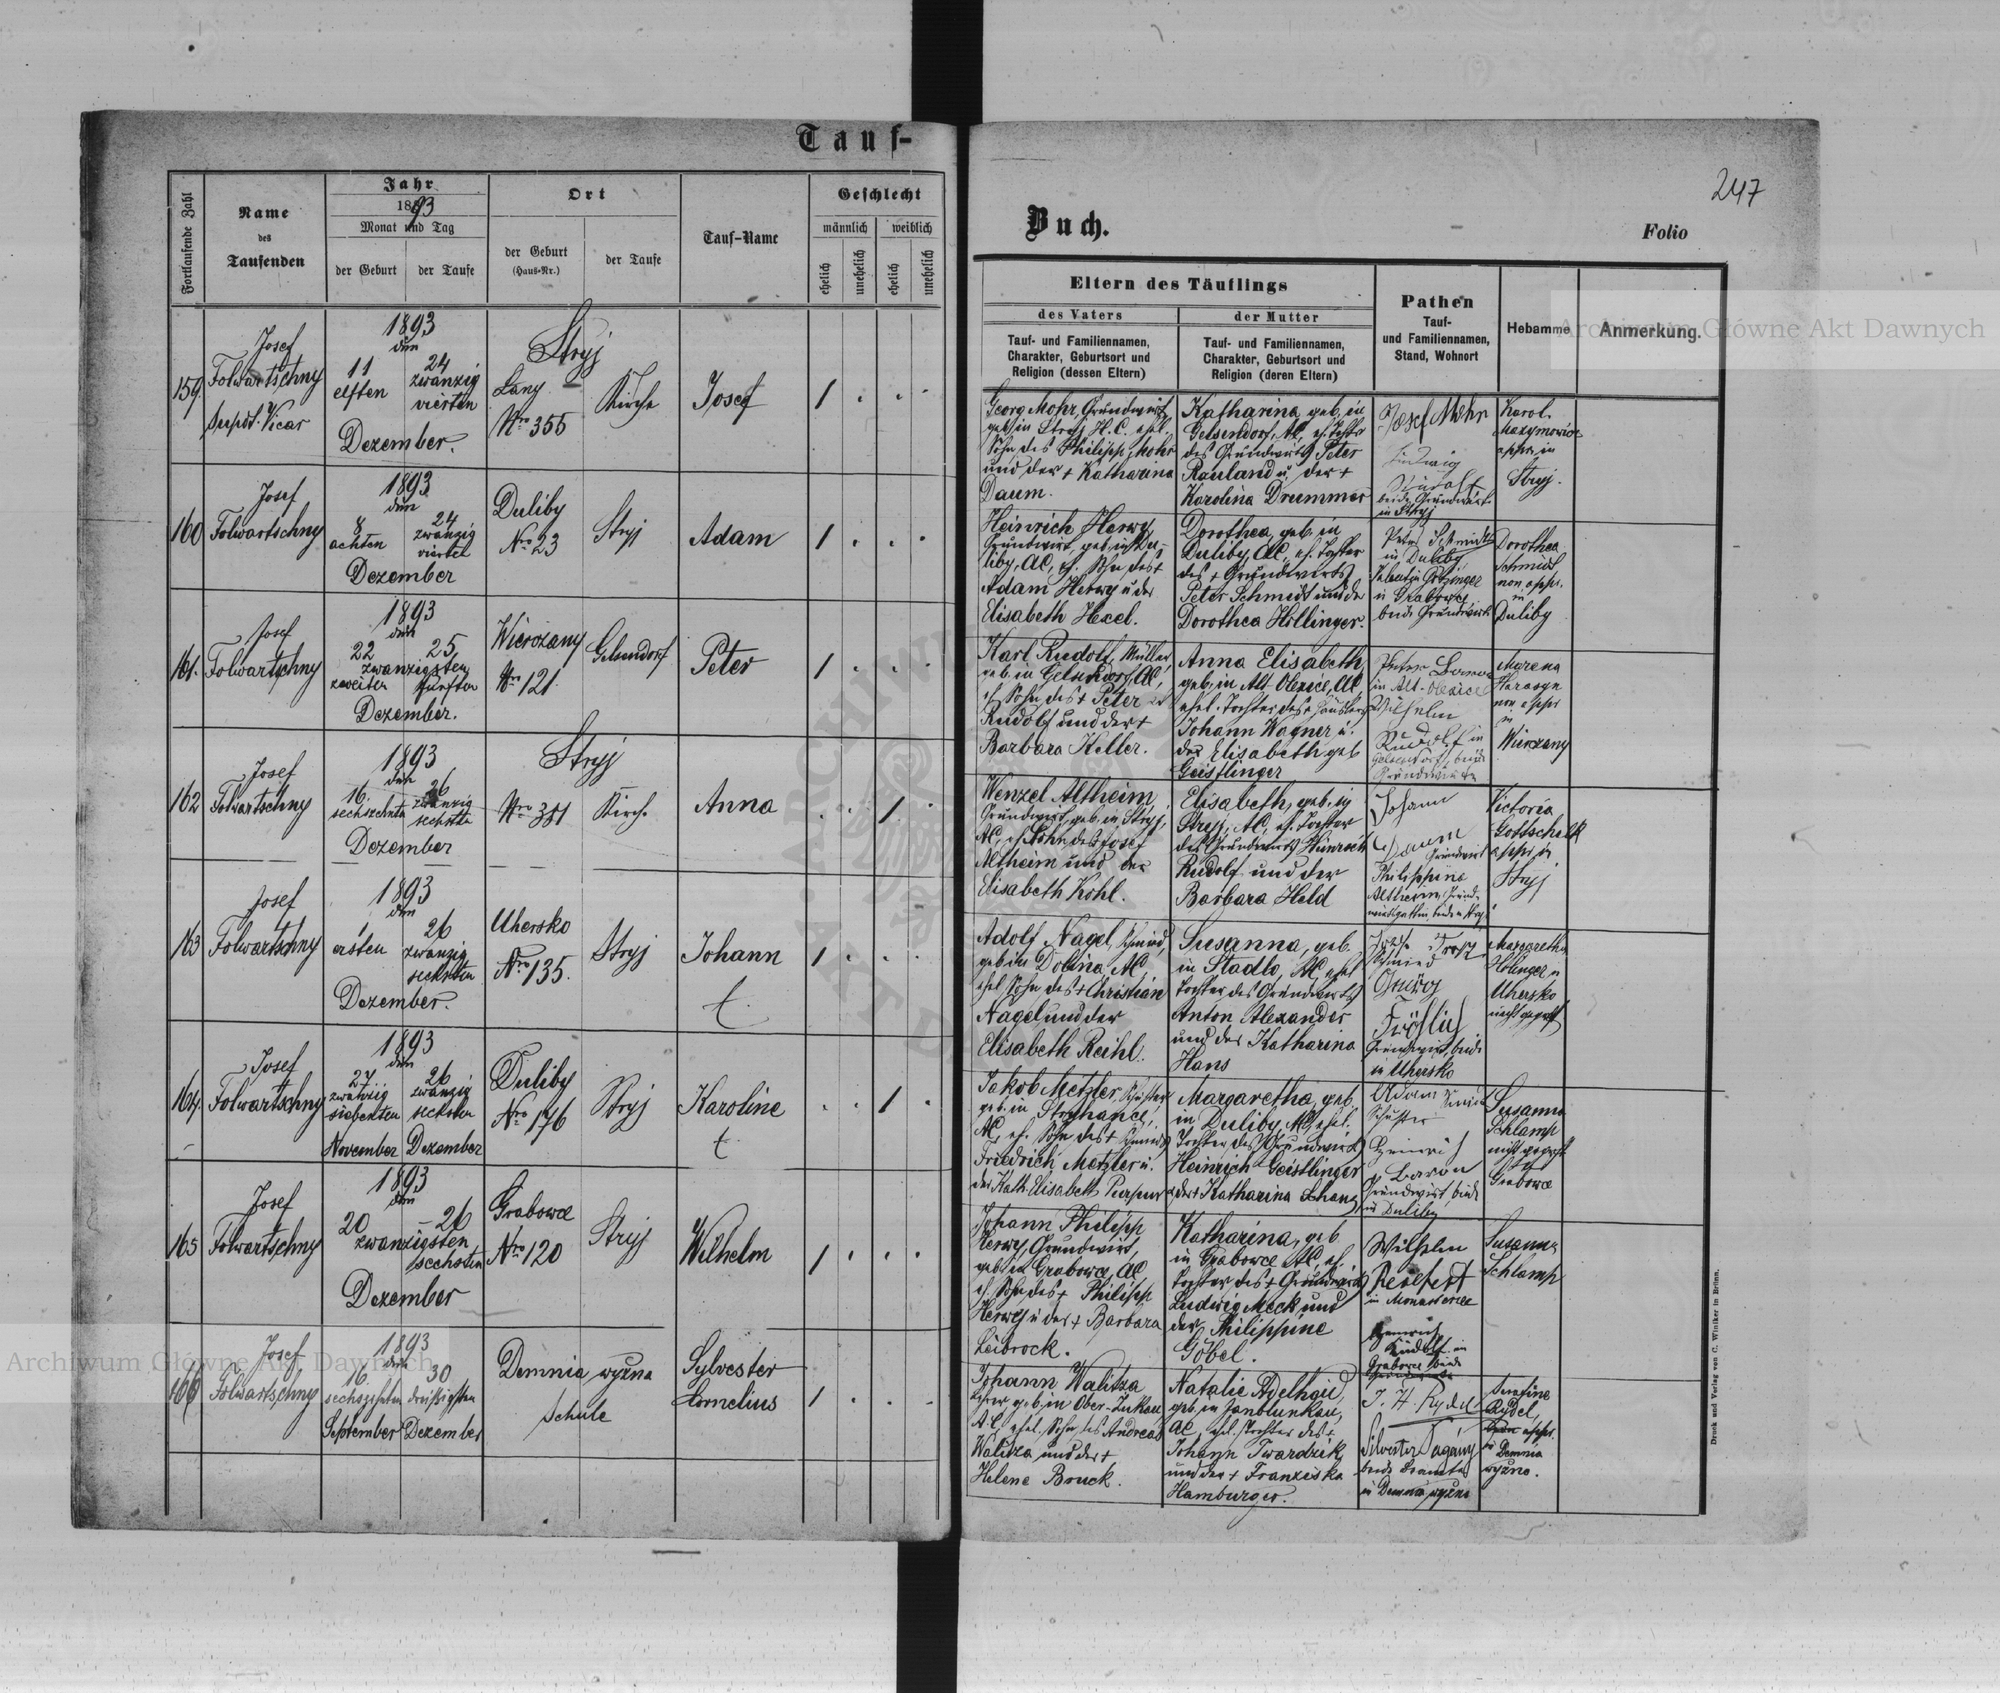 Tauf-
Fortlaufende Zahl
Name
des
Taufenden
Jahr
1893
Monat und Tag
der Geburt
der Taufe
Ort
der Geburt
(Haus-Nr.)
der Taufe
Tauf-Name
Geschlecht
männlich
weiblich
ehelich
unehelich
ehelich
unehelich
159.
Josef
Folwartschny
Vicar
1893
den
11
elften
24
zwanzig
vierten
Dezember.
Stryj
Lany
Nro 355
Kirche
Josef
1
160
Josef
Folwartschny
1893
den
8
achten
24
zwanzig
vierten
Dezember
Duliby
Nro 23
Stryj
Adam
1
161.
Josef
Folwartschny
1893
den
22
zwanzigsten
zweiten
25
fünften
Dezember.
Wierczany
Nro 121.
Gelsendorf
Peter
1
162
Josef
Folwartschny
1893
den
16.
sechszehnten
26
zwanzig
sechsten
Dezember
Stryj
Nro 381
Kirche
Anna
1
163
Josef
Folwartschny
1893
den
1
ersten
26
zwanzig
sechsten
Dezember.
Uhersko
Nro 135.
Stryj
Johann
1
164.
Josef
Folwartschny
1893
den
27
zwanzig
siebenten
November
26
zwanzig
sechsten
Dezember
Duliby
Nro 176
Stryj
Karoline
1
165
Josef
Folwartschny
1893
den
20 – 26
zwanzigsten
sechsten
Dezember
Grabowce
Nro 120
Stryj
Wilhelm
1
166
Josef
Folwartschny
1893
den
16.
sechszehnten
September
30
dreißigsten
Dezember
Demnia wyzna
Schule
Sylvester
Cornelius
1
247
Buch.
Folio
Eltern des Täuflings
des Vaters
Tauf- und Familiennamen,
Charakter, Geburtsort und
Religion (dessen Eltern)
der Mutter
Tauf- und Familiennamen,
Charakter, Geburtsort und
Religion (deren Eltern)
Pathen
Tauf-
und Familiennamen,
Stand, Wohnort
Hebamme
Anmerkung.
Georg Mohr, Grundwirt,
geb. in Stryj H. C. ehel.
Sohn des Philipp Mohr
und der + Katharina
Daum.
Katharina, geb. in
Gelsendorf, AC, eh. Tochter
des Grundwirts Peter
Rauland u. der +
Karolina Drummer
Josef Mohr
Ludwig
Rudolf
beide Grundwirte
in Stryj
Karol.
Maxymowicz
appr. in
Stryj.
Heinrich Herwy,
Grundwirt, geb. in Du-
liby, AC, eh. Sohn des +
Adam Herwy u. der
Elisabeth Hexel.
Dorothea, geb. in
Duliby, AC, eh. Tochter
des + Grundwirts
Peter Schmidt und der
Dorothea Hollinger.
Peter Schmidt
in Duliby,
in Grabowce
beide Grundwirte
Dorothea
Schmidt
non appr.
in
Duliby
Karl Rudolf, Müller,
geb. in Gelsendorf, AC,
eh. Sohn des + Peter
Rudolf und der +
Barbara Keller.
Anna Elisabeth,
geb. in Alt-Olexice, AC,
ehel. Tochter des + Häuslers
Johann Wagner u.
der Elisabeth geb
Geistlinger
in Alt-Olexice
Wilhelm
Rudolf in
Gelsendorf, beide
Grundwirte
Marena
Harasyn
non appr
in
Wierczany
Wenzel Altheim,
Grundwirt, geb. in Stryj,
AC, eh. Sohn des Josef
Altheim und der
Elisabeth Kohl.
Elisabeth, geb. in
Stryj, AC, eh. Tochter
des Grundwirts Heinrich
Rudolf und der
Barbara Held
Johann
Daum
Grundwirt
Philippine
Altheim, Grund-
wirtsgattin, beide in Stryj
Victoria
Gottschalk
appr. in
Stryj
Adolf Nagel, Schmied,
geb. in Dolina, AC,
ehel. Sohn des + Christian
Nagel und der
Elisabeth Reihl.
Susanna, geb.
in Stadlo, AC, ehel
Tochter des Grundwirts
Anton Alexander
und der Katharina
Hans
Schmied
Georg
Fröhlich
Grundwirt, beide
in Uhersko
Margaretha
Hollinger in
Uhersko
nicht geprüft
Jakob Metzler, Schuster,
geb. in Stryhance,
AC, eh. Sohn des + Schmieds
Friedrich Metzler u.
der Kath. Elisabeth
Margaretha, geb.
in Duliby, AC, ehel.
Tochter des Grundwirts
Heinrich Geistlinger
u. der + Katharina
Adam
Schuster
Heinrich
Baron
Grundwirt, beide
in Duliby
Susanna
Schlamp
nicht geprüft
Grabowce
Johann Philipp
Herwy, Grundwirt,
geb. in Grabowce, AC
eh. Sohn des + Philipp
Herwy u. der + Barbara
Leibrock.
Katharina, geb
in Grabowce AC, eh.
Tochter des + Grundwirts
Ludwig Meck und
der Philippine
Göbel.
Wilhelm
in
Heinrich
Rudolf in
Grabowce beide
Grundwirte
Susanna
Schlamp
Johann Walitza
Lehrer geb. in Ober-Zukau,
AC, ehel. Sohn des Andreas
Walitza und der +
Helene Bruck.
Natalie Adelheid,
geb. in Jablunkau,
AC, ehel. Tochter des +
Johann Twardzik
und der + Franziska
Hamburger.
Silvester
beide Beamte
in Demnia wyzna
Serafine
Rydel,
appr.
in Demnia
wyzna.
Druck und Verlag von C. Winiker in Brünn.
Archiwum Główne Akt Dawnych
Archiwum Główne Akt Dawnych